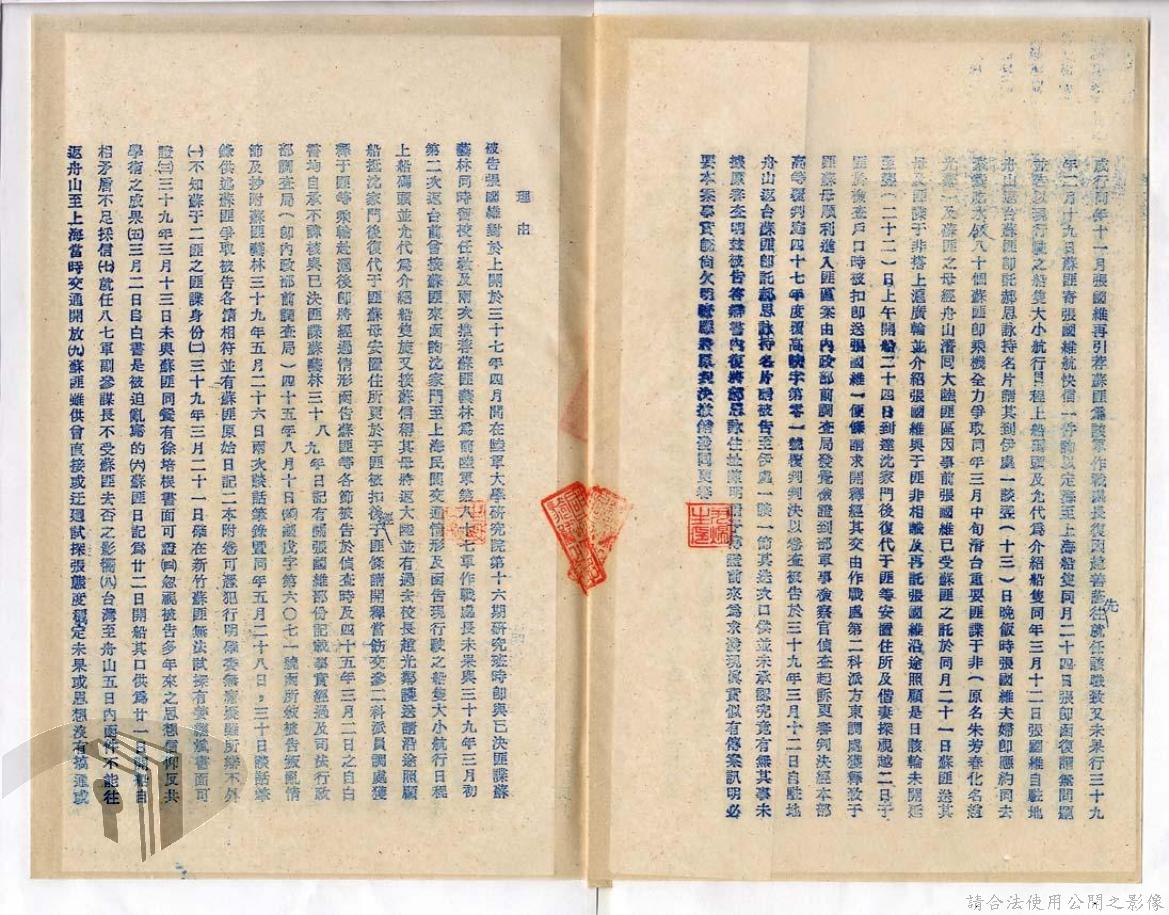 成行同年十一月張國維再引荐蘇匪為該軍作戰課長復因趙善蔭往就任該職致又未果行三十九
年二月十九日蘇匪寄張國維航快信一件詢以定海至上海船隻同月二十四日張即函復匪無問題
並告以現行駛之船隻大小航行日程上船碼頭及允代為介紹船隻同年三月十二日張國維自駐地
舟山返台蘇匪即託郝恩詠持名片請其到伊處一談張（十三）日晚飯時張國維夫婦即應約同去
蘇匪即乘機全力爭取同年三月中旬潛台重要匪諜于非（原名朱芳春化名趙
光華）及蘇匪之母經舟山潛回大陸匪區因事前張國維已受蘇匪之託於同月二十一日蘇匪送其
母及匪諜于非搭上滬廣輪並介紹張國維與于匪非相識及再託張國維沿途照顧是日該輪未開延
至翌（二十二）日上午開船二十四日到達沈家門後復代于匪等安置住所及偕妻探視越二日于
匪於檢查戶口時被扣即送張國維一便條請求開釋經其交由作戰處第二科派方東調處獲釋致于
匪蘇母順利進入匪區案由內政部前調查局發覺檢證到部軍事檢察官偵查起訴更審判決經本部
高等覆判庭四十七年度覆高曉字第零一號覆判判決以卷查被告於三十九年三月十二日自駐地
舟山返台蘇匪即託郝恩詠持名片請被告至伊處一談一節其迭次口供並未承認究竟有無其事未
據原審查明茲被告答辯書內復將郝恩詠住址陳明請予傳證前來為求發現真實似有傳案訊明必
要本案事實既尚欠明瞭應將原判決撤銷發回更審
先
理由
被告張國維對於上開於三十七年四月間在陸軍大學研究院第十六期研究班時即與已決匪諜蘇
藝林同時留校任教及兩次推荐蘇匪藝林為前陸軍第八十七軍作戰處長未果與三十九年三月初
第二次返台前曾接蘇匪來函詢沈家門至上海民間交通情形及函告現行駛之船隻大小航行日程
上船碼頭並允代為介紹船隻旋又接蘇信稱其母將返大陸並有過去校長趙光華護送請沿途照顧
船抵沈家門後復代于匪蘇母安置住所更於于匪被扣後予匪條請開釋當飭交參二科派員調處獲
釋于匪等乘輪赴滬後即將經過情形函告蘇匪等各節被告於偵查時及四十五年三月二日之自白
書均自承不諱核與已決匪諜蘇藝林三十八、九年日記有關張國維部份記載事實經過及司法行政
部調查局（即內政部前調查局）四十五年八月十日(45)諷戊字第六〇七一號函所敘被告叛亂情
節及抄附蘇匪藝林三十九年五月二十六日兩次談話筆錄暨同年五月二十八日，三十日談話筆
錄供述蘇匪爭取被告各情相符並有蘇匪原始日記二本附卷可憑犯行明確委無意義雖所辯不外
㈠不知蘇于二匪之匪諜身份㈡三十九年三月二十一日確在新竹蘇匪無法試探有姜漢風書面可
證㈢三十九年三月十三日未與蘇匪同餐有徐培根書面可證㈣忽視被告多年來之思想信仰反共
學術之成果㈤三月二日自白書是被迫亂寫的㈥蘇匪日記為廿二日開船其口供為廿一日開船自
相矛盾不足採信㈦就任八七軍副參謀長不受蘇匪去否之影響㈧台灣至舟山五日內函件不能往
返舟山至上海當時交通開放㈨蘇匪雖供曾直接或迂迴試探張態度穩定未果或思想沒有搞通或
請合法使用公開之影像